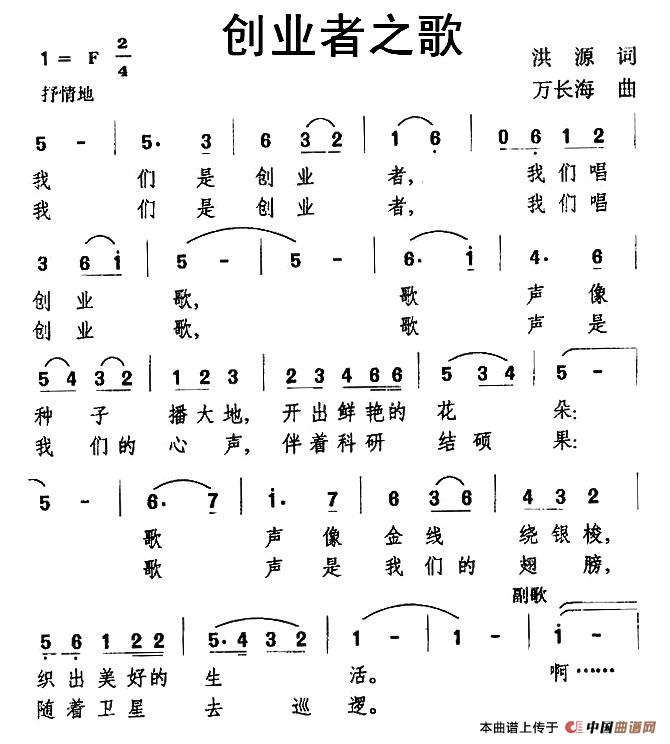 创业者之歌
1 = F 2/4
洪源 词
抒情地
万长海 曲
5 - | 5. 3 | 6 3 2 | 1 6 | 0 6 1 2 |
我 们是创业 者， 我们唱
我 们是创业 者， 我们唱
3 6 i | 5 - | 5 - | 6. i | 4. 6 |
创业 歌， 歌 声像
创业 歌， 歌 声是
5 4 3 2 | 1 2 3 | 2 3 4 6 6 | 5 3 4 | 5 - |
种子 播大地，开出鲜艳的花 朵：
我们的 心声，伴着科研 结硕 果：
5 - | 6. 7 | i. 7 | 6 3 6 | 4 3 2 |
歌 声像金线 绕银梭，
歌 声是我们的 翅膀，
副歌
5 6 1 2 2 | 5.4 3 2 | 1 - | 1 - | i - |
织出美好的 生 活。 啊……
随着卫星 去巡 逻。
本曲谱上传于 中国曲谱网